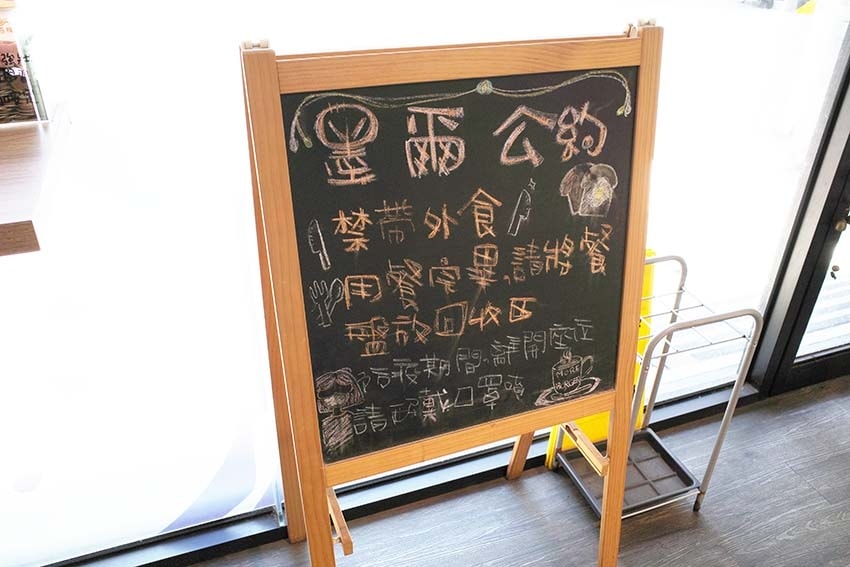 墨爾公約
禁帶外食
用餐完畢,請將餐
盤放回收區
防疫期間,離開座位
請配戴口罩唷
MORE
BURGER